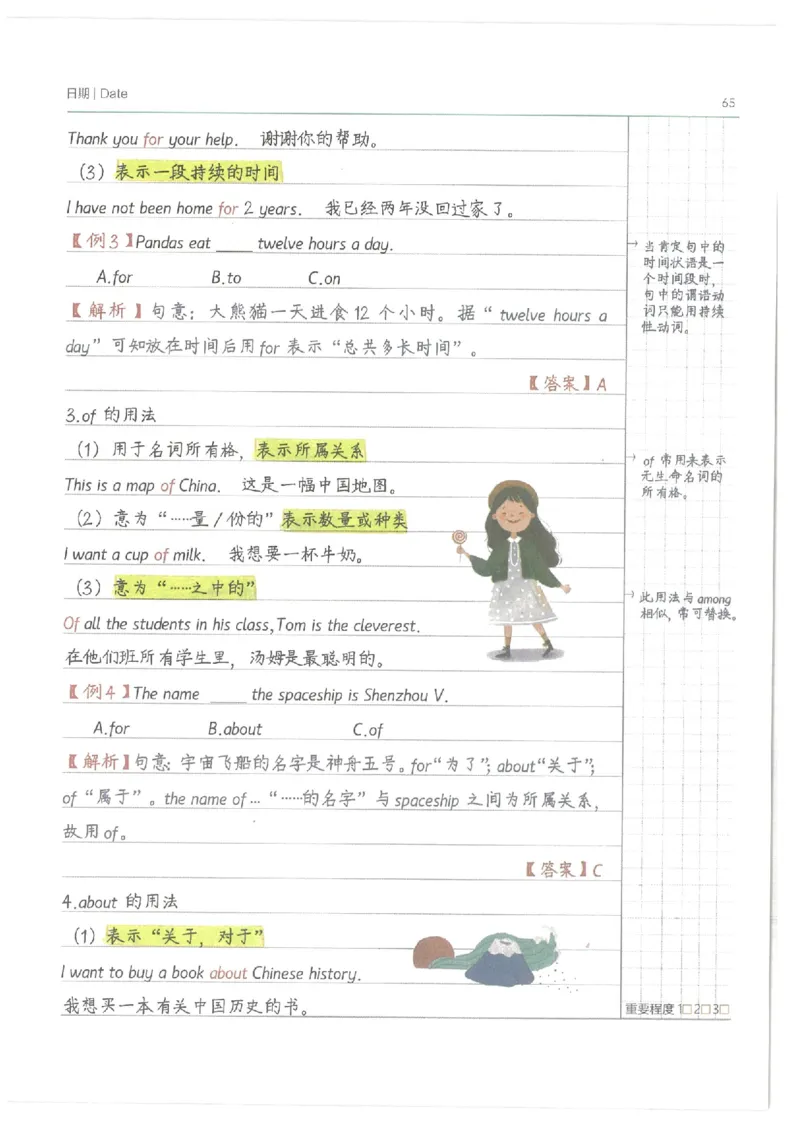 日期 | Date
65
Thank you for your help. 谢谢你的帮助。
(3) 表示一段持续的时间
I have not been home for 2 years. 我已经两年没回过家了。
【例3】Pandas eat ____ twelve hours a day.
A.for B.to C.on
【解析】句意：大熊猫一天进食12个小时。据“twelve hours a
day”可知放在时间后用for表示“总共多长时间”。
【答案】A
3.of 的用法
(1) 用于名词所有格，表示所属关系
This is a map of China. 这是一幅中国地图。
(2) 意为“……量/份的”表示数量或种类
I want a cup of milk. 我想要一杯牛奶。
(3) 意为“……之中的”
Of all the students in his class,Tom is the cleverest.
在他们班所有学生里，汤姆是最聪明的。
【例4】The name ____ the spaceship is Shenzhou V.
A.for B.about C.of
【解析】句意：宇宙飞船的名字是神舟五号。for“为了”；about“关于”；
of“属于”。the name of…“……的名字”与spaceship之间为所属关系，
故用of。
【答案】C
4.about 的用法
(1) 表示“关于，对于”
I want to buy a book about Chinese history.
我想买一本有关中国历史的书。
→ 当肯定句中的
时间状语是一
个时间段时，
句中的谓语动
词只能用持续
性动词。
→ of 常用来表示
无生命名词的
所有格。
→ 此用法与among
相似，常可替换。
重要程度 1□ 2□ 3□